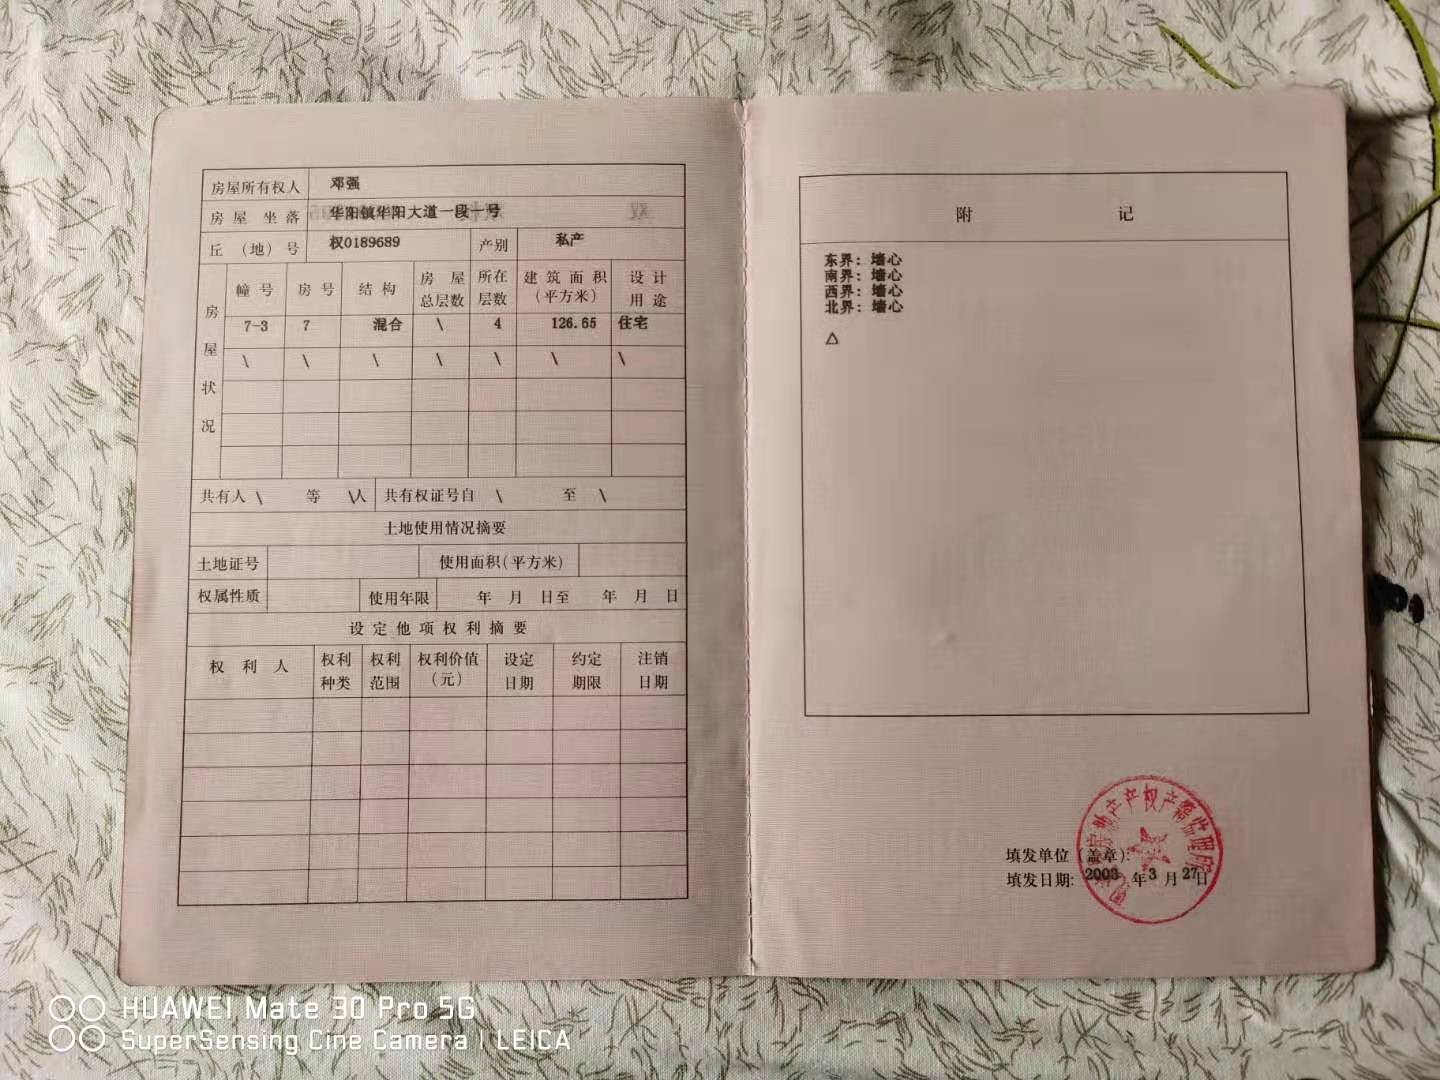 房屋所有权人 邓强
房屋坐落 华阳镇华阳大道一段一号
丘（地）号 权0189689 产别 私产
房屋状况
幢号 房号 结构 房屋总层数 所在层数 建筑面积（平方米） 设计用途
7-3 7 混合 \ 4 126.65 住宅
\ \ \ \ \ \ \
共有人 \ 等 \人 共有权证号自 \ 至 \
土地使用情况摘要
土地证号 使用面积(平方米)
权属性质 使用年限 年 月 日至 年 月 日
设定他项权利摘要
权利人 权利种类 权利范围 权利价值（元） 设定日期 约定期限 注销日期
附 记
东界：墙心
南界：墙心
西界：墙心
北界：墙心
△
填发单位（盖章）：
填发日期：2003年3月27日
HUAWEI Mate 30 Pro 5G
SuperSensing Cine Camera | LEICA